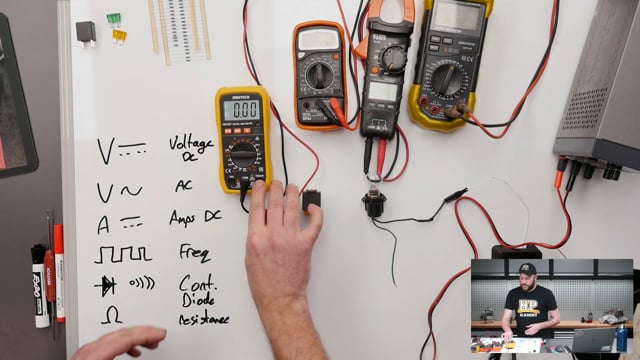 V Voltage
DC
V AC
A Amps DC
Freq
Cont.
Diode
Ω resistance
000
EXPO
HP
ACADEMY